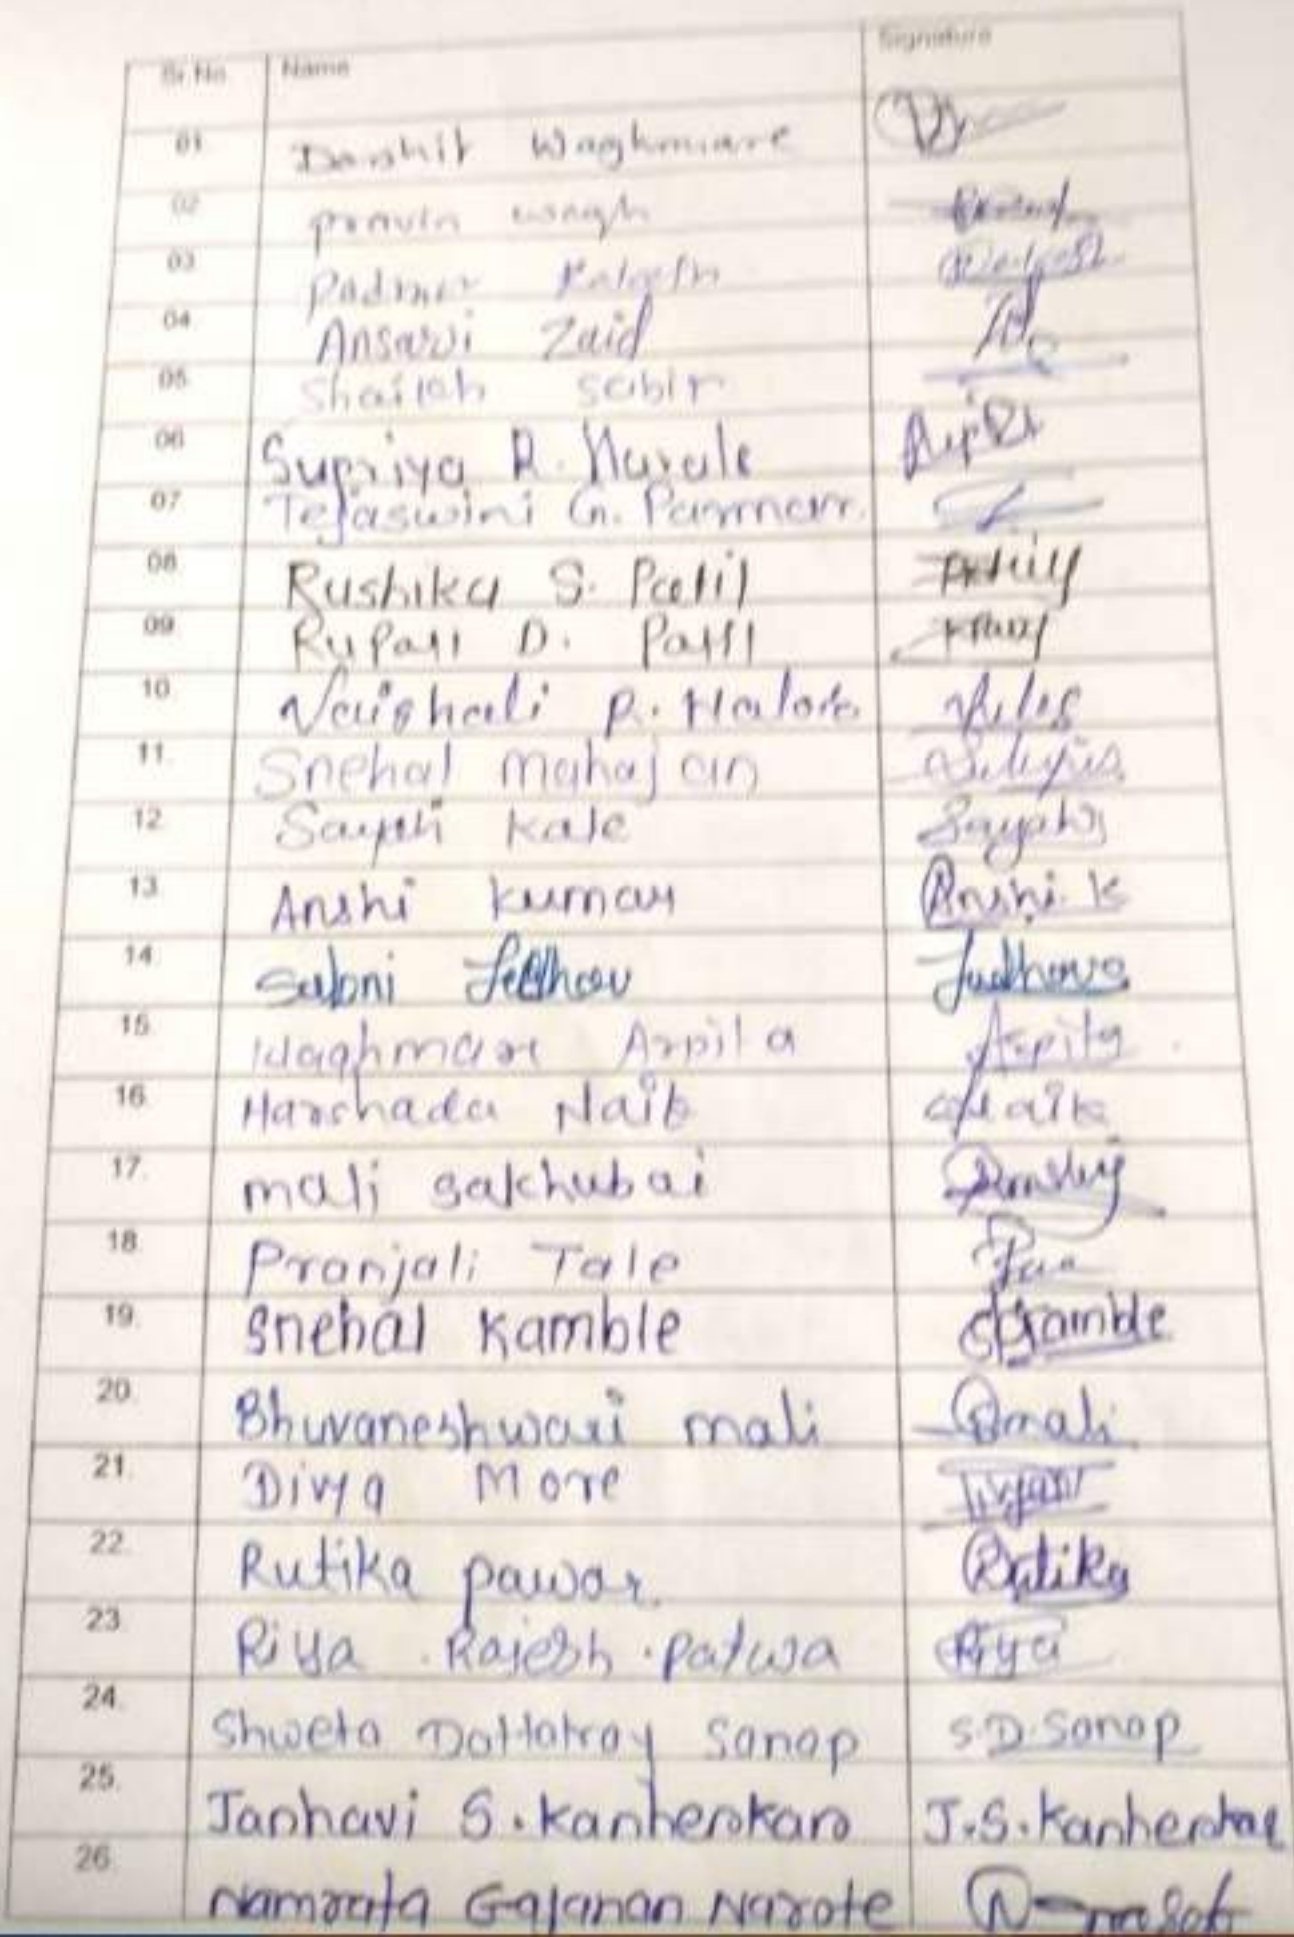 Sr.No Name Signature
01. Darshit Waghmare
02. pravin wagh
03. Padmer Kalesh
04. Ansari Zaid
05. Shaikh Sabir
06. Supriya R. Narale
07. Tejaswini G. Parmar.
08. Rushika S. Patil
09. Rupali D. Patil
10. Vaishali R.
11. Snehal mahajan
12. Sayali Kale Sayali
13. Anshi kumar Anshi.K
14. saloni Jadhav
15. Waghmare Arpita Arpita
16. Harshada Naik Naik
17. mali sakhubai
18. Pranjali Tale
19. snehal Kamble SKamble
20. Bhuvaneshwari mali Bmali
21. Divya More
22. Rutika pawar Rutika
23. Riya . Rajesh . patwa Riya
24. Shweta Dattatray Sanap S.D.Sanap
25. Janhavi S.Kanherkar J.S.Kanherkar
26. Namrata Gajanan Narote